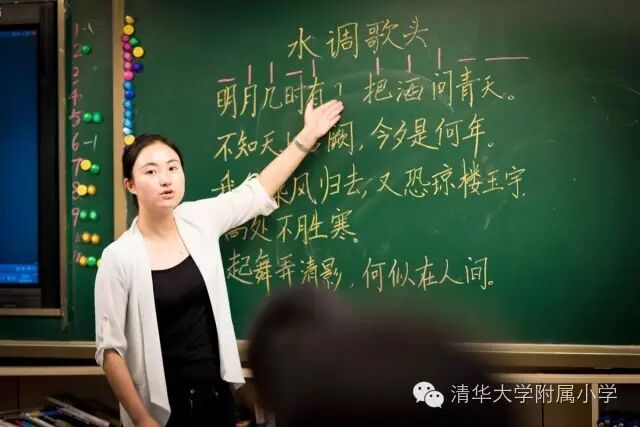 水调歌头
明月几时有？把酒问青天。
不知天阙，今夕是何年。
我乘风归去，又恐琼楼玉宇
高处不胜寒。
起舞弄清影，何似在人间。
2
3
4
5
6
7
8
9
清华大学附属小学